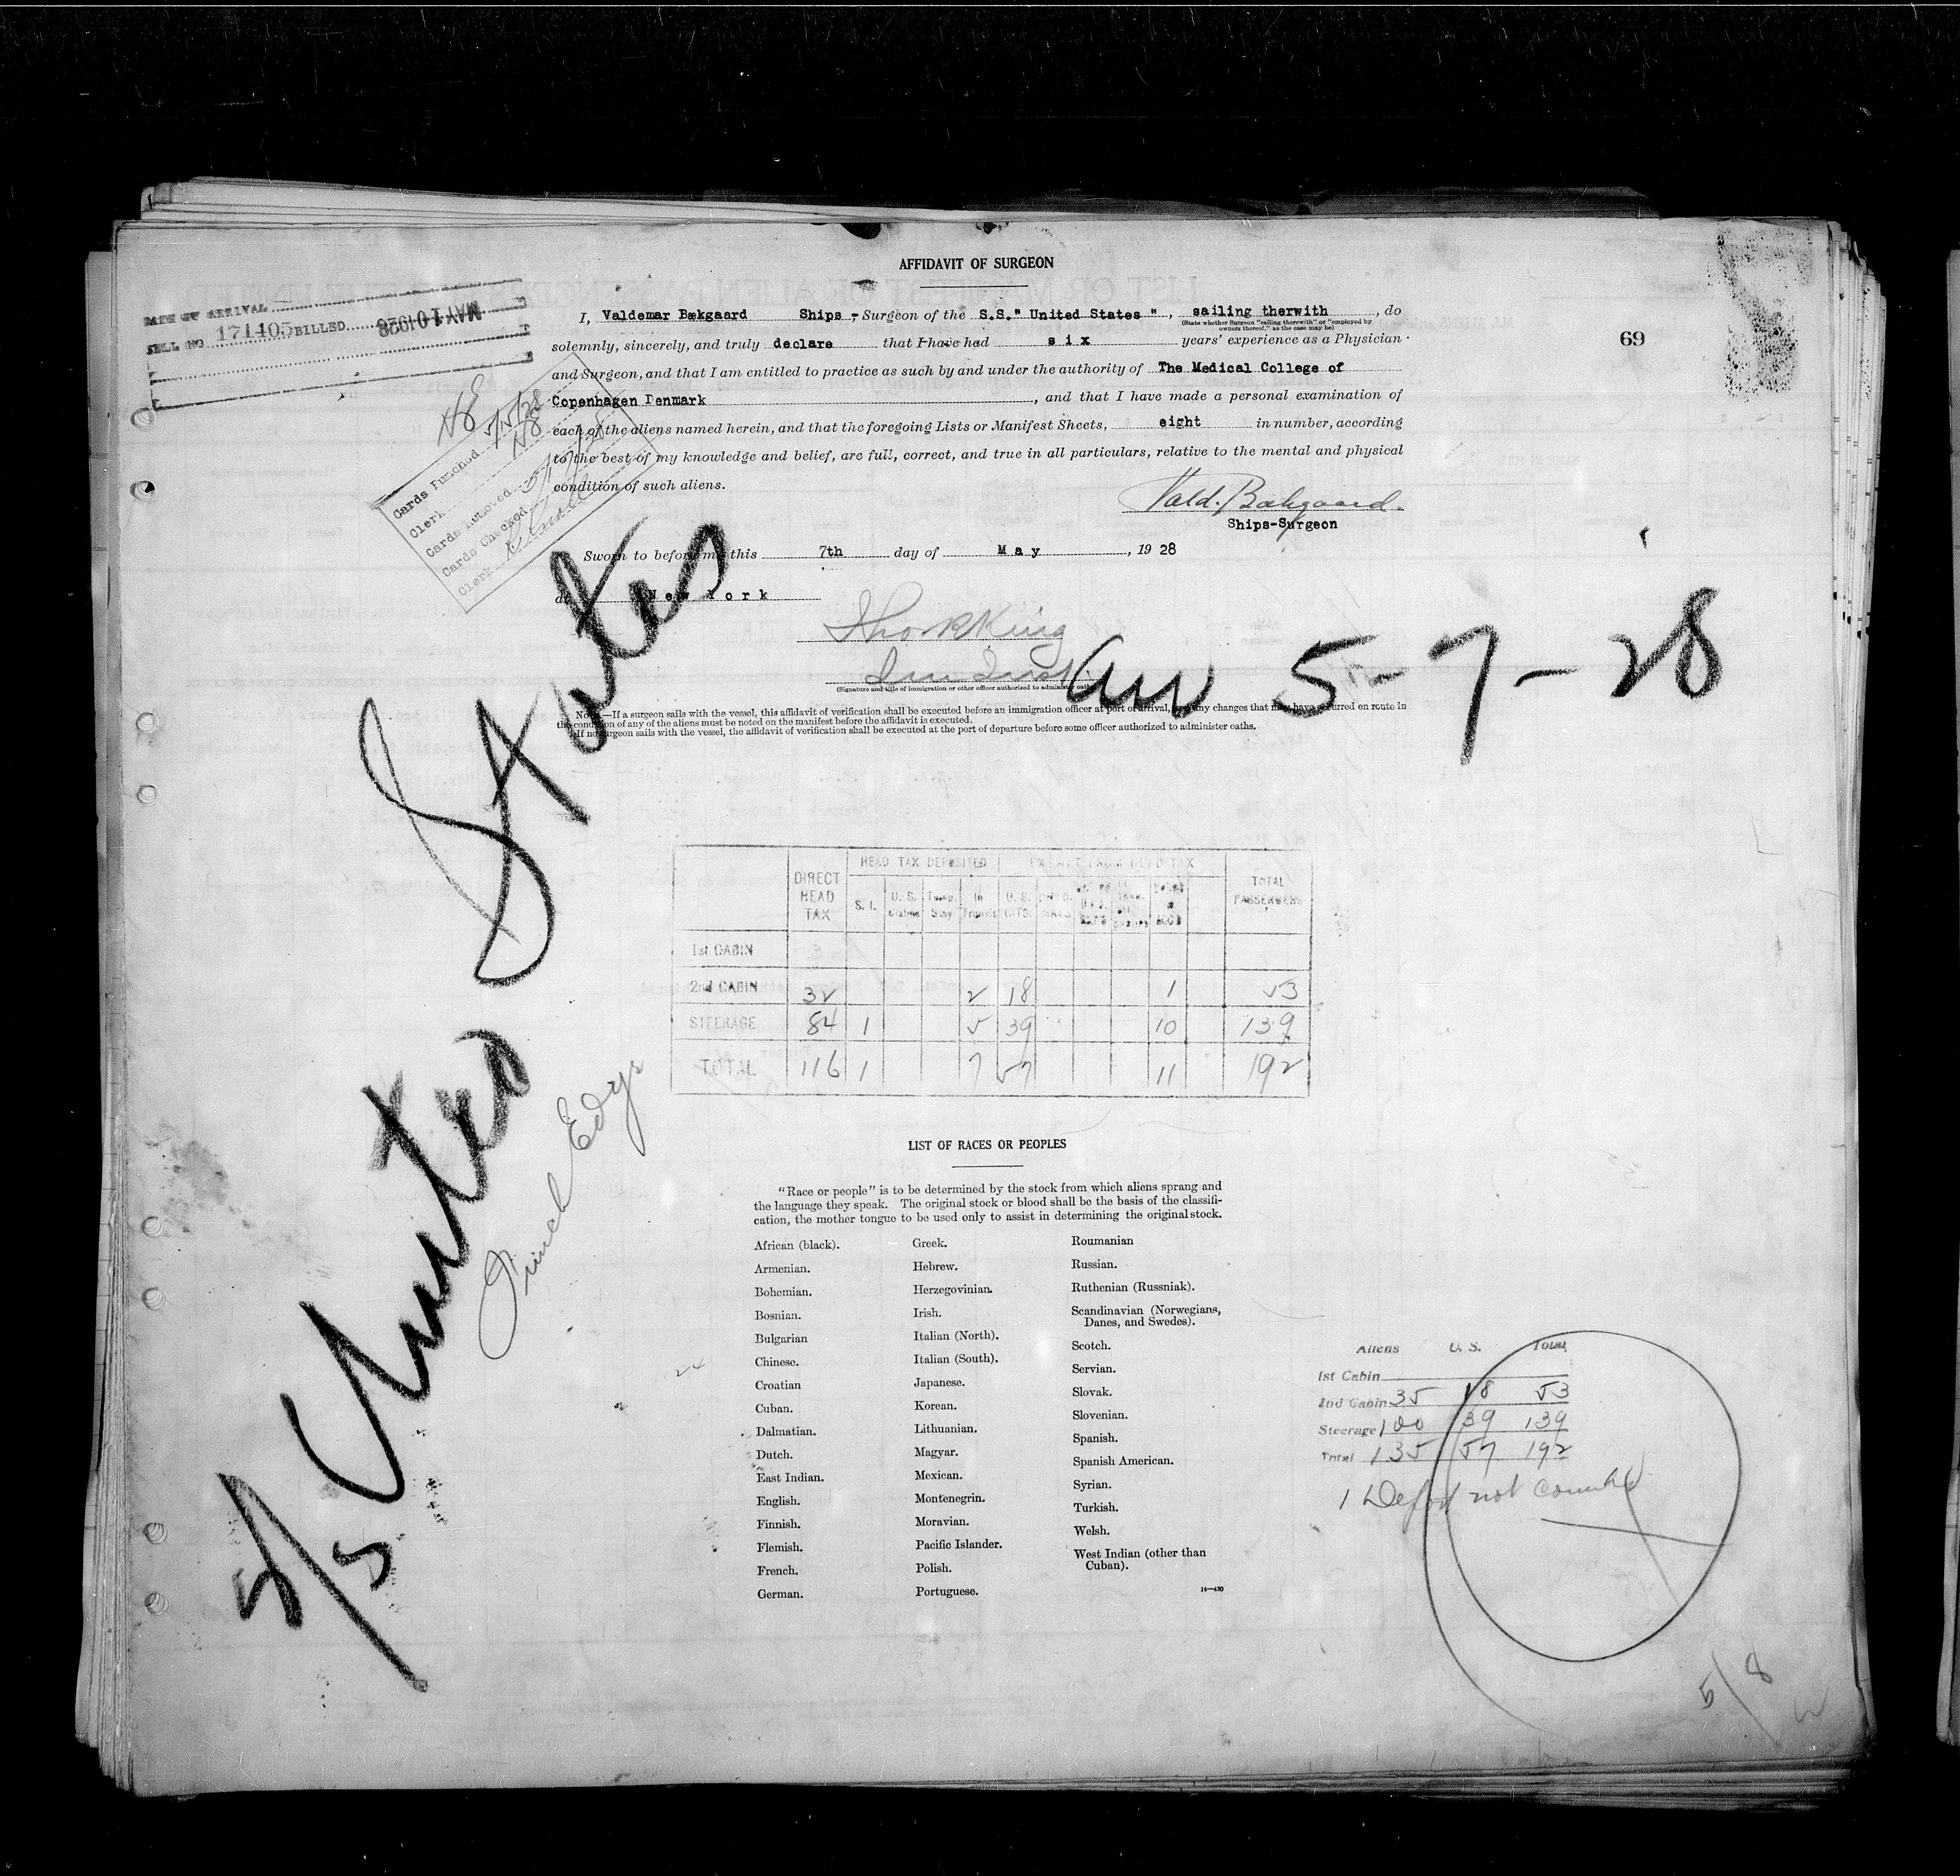 AFFIDAVIT OF SURGEON
DATE OF ARRIVAL
BELL NO 171405 BILLED MAY 10 1928
69
I, Valdemar Bækgaard Ships - Surgeon of the S.S." United States ", sailing therwith, do
(State whether Surgeon "sailing therewith" or "employed by
owners thereof," as the case may be)
solemnly, sincerely, and truly declare that I have had six years' experience as a Physician
and Surgeon, and that I am entitled to practice as such by and under the authority of The Medical College of
Copenhagen Denmark, and that I have made a personal examination of
each of the aliens named herein, and that the foregoing Lists or Manifest Sheets, eight in number, according
to the best of my knowledge and belief, are full, correct, and true in all particulars, relative to the mental and physical
condition of such aliens.
Vald. Bækgaard.
Ships-Surgeon
Cards Punched 5/15/28
Clerk HE
Cards Removed
Cards Checked
Clerk
HE
Sworn to before me this 7th day of May, 1928
at New York
Thor R King
Imm Insp
(Signature and title of immigration or other officer authorized to administer oaths)
Arr 5-7-28
NOTE.—If a surgeon sails with the vessel, this affidavit of verification shall be executed before an immigration officer at port of arrival, and any changes that may have occurred en route in
the condition of any of the aliens must be noted on the manifest before the affidavit is executed.
If no surgeon sails with the vessel, the affidavit of verification shall be executed at the port of departure before some officer authorized to administer oaths.
United States
5/5
HEAD TAX DEPOSITED EXEMPT FROM HEAD TAX
DIRECT HEAD TAX S. I. U. S. Claims Temp. Stay In Transit U. S. CITS. TOTAL PASSENGERS
1st CABIN
2nd CABIN 32 2 18 1 53
STEERAGE 84 1 5 39 10 139
TOTAL 116 1 7 57 11 192
LIST OF RACES OR PEOPLES
"Race or people" is to be determined by the stock from which aliens sprang and
the language they speak. The original stock or blood shall be the basis of the classifi-
cation, the mother tongue to be used only to assist in determining the original stock.
African (black).
Armenian.
Bohemian.
Bosnian.
Bulgarian
Chinese.
Croatian
Cuban.
Dalmatian.
Dutch.
East Indian.
English.
Finnish.
Flemish.
French.
German.
Greek.
Hebrew.
Herzegovinian.
Irish.
Italian (North).
Italian (South).
Japanese.
Korean.
Lithuanian.
Magyar.
Mexican.
Montenegrin.
Moravian.
Pacific Islander.
Polish.
Portuguese.
Roumanian
Russian.
Ruthenian (Russniak).
Scandinavian (Norwegians,
Danes, and Swedes).
Scotch.
Servian.
Slovak.
Slovenian.
Spanish.
Spanish American.
Syrian.
Turkish.
Welsh.
West Indian (other than
Cuban).
14—430
Aliens U. S. Total
1st Cabin
2nd Cabin 35 18 53
Steerage 100 39 139
Total 135 57 192
1 Deport not counted
5/8